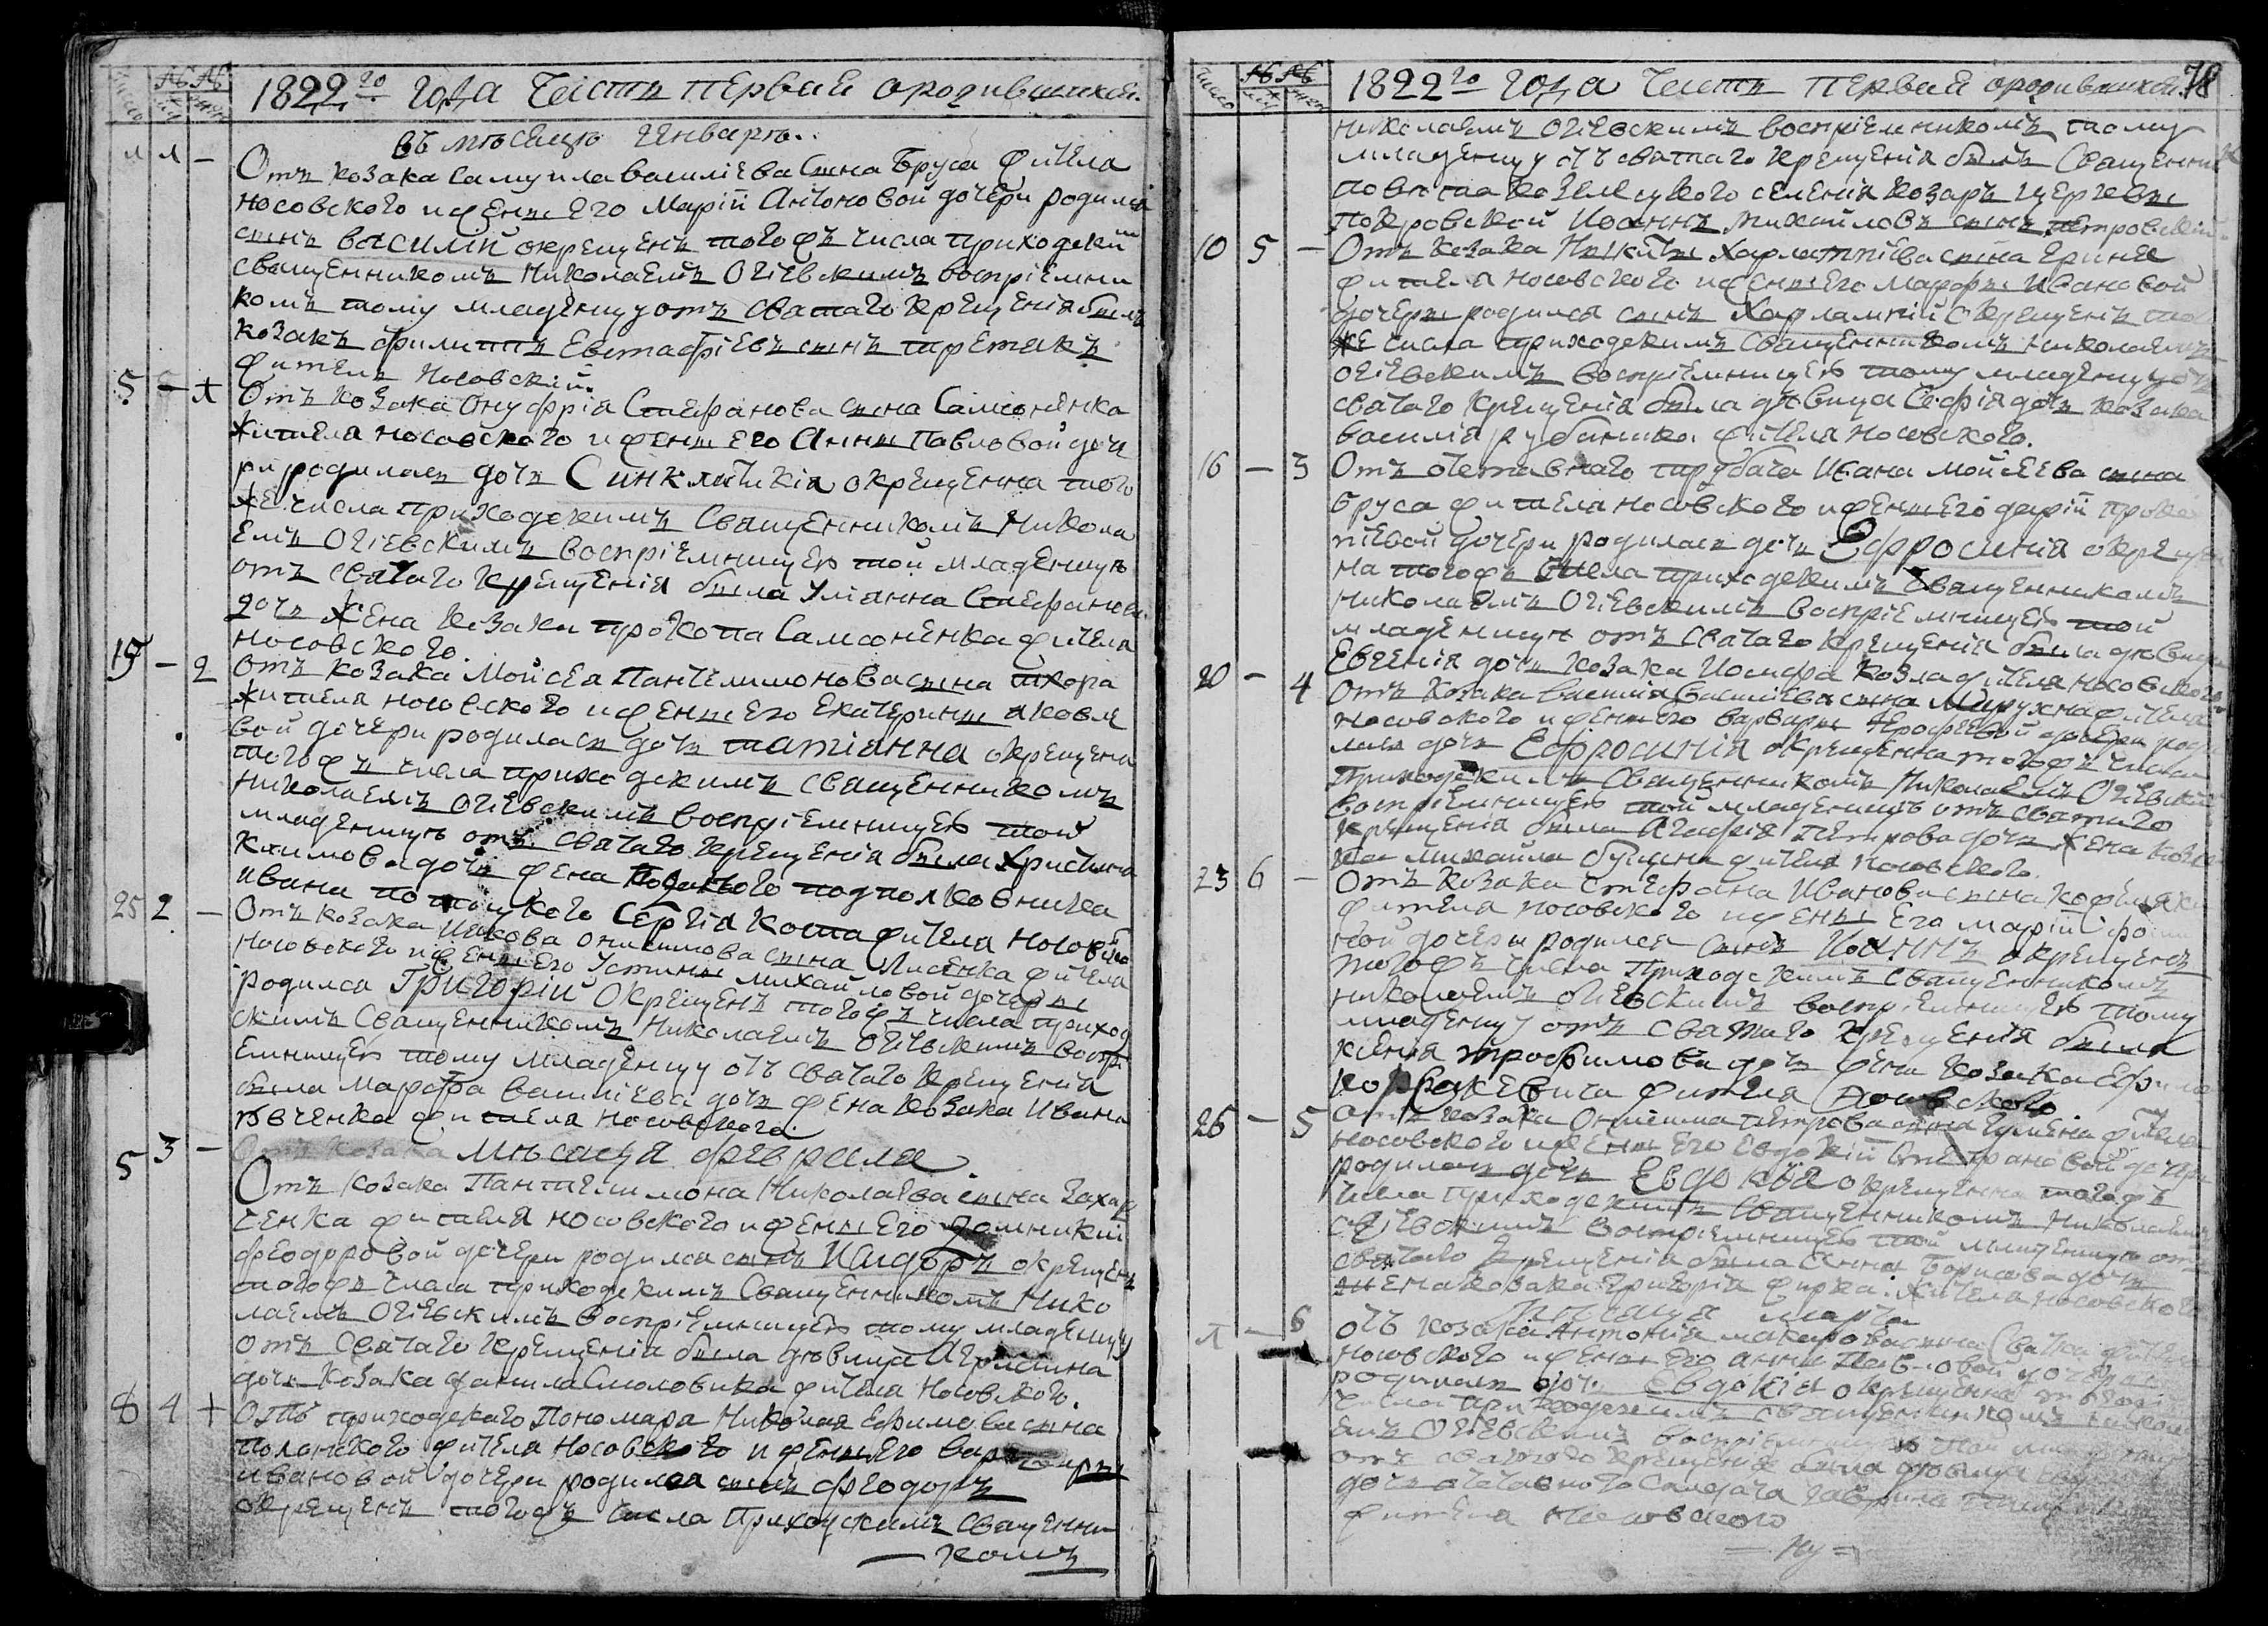 число № муж № жен
1822го года Часть первая о родившихся.
въ месяце Генваре.
1 1 — Отъ козака Самуила Василіева сына Бруса жителя
носовского и жены его Маріи Антоновой дочери родился
сынъ Василий окрещенъ того жъ числа приходским
священникомъ Николаемъ Огіевскимъ воспріемни
комъ тому младенцу отъ святаго крещенія былъ
козакъ Филиппъ Евстафіевъ сынъ третякъ
житель Носовский.
5 — 1 Отъ козака Онуфрія Стефанова сына Самсоненка
жителя носовского и жены его Анны Павловой доче
ри родилась дочь Синклитикія окрещенна того
же числа приходскимъ Священникомъ Никола
емъ Огіевскимъ воспріемницею той младенице
отъ святаго крещенія была Уліанна Стефанова
дочь жена козака прокопа Самсоненка жителя
носовского.
15 — 2 отъ козака Мойсея Пантелимонова сына тхора
жителя носовского и жены его Екатерины яковле
вой дочери родилась дочь татіанна окрещенна
того жъ числа приходскимъ священникомъ
Николаемъ Огіевскимъ воспріемницею той
младенице отъ святаго крещенія была христина
климова дочь жена подполковника
ивана Сергія Коста жителя носовского
25 2 — Отъ козака Иякова онисимова сына Лисенка жителя
носовского и жены его Устины михайловой дочеры
родился Григорій окрещенъ того жъ числа приход
скимъ Священникомъ Николаемъ Огіевскимъ воспрі
емницею тому младенцу отъ святаго крещенія
была марфа василіева дочь жена козака Ивана
жителя носовского
Месяца февраля.
5 3 — Отъ козака Пантелимона Николаева сына Захар
ченка жителя носовского и жены его домникіи
феодоровой дочери родился сынъ Исидоръ окрещенъ
того жъ числа приходскимъ Священникомъ Нико
лаемъ Огіевскимъ воспріемницею тому младенцу
отъ Святаго крещенія была девица Агрипина
дочь козака данила Смоловика жителя Носовского.
8 4 + отъ приходского Пономара Николая Ефимова сына
полонского жителя Носовского и жены его варвары
ивановой дочери родился сынъ феодоръ
окрещенъ того жъ числа Приходскимъ священни
— комъ
число № муж № жен
1822го года Часть первая о родившихся. 78
николаемъ Огіевскимъ воспріемникомъ тому
младенцу отъ святаго крещенія былъ Священник
повета козелецкого селенія Козаръ церквы
покровской Иоаннъ михайловъ сынъ петровский.
10 5 — Отъ козака Никиты Харлампіева сына Гриня
жителя носовского и жены его марфы Ивановой
дочеры родился сынъ Харлампий окрещенъ того
же числа приходскимъ священникомъ николаемъ
огіевскимъ воспріемницею тому младенцу отъ
святаго крещенія была девица Софія дочь козака
василія рубаника жителя носовского.
16 — 3 Отъ отставного трубача Ивана мойсеева сына
бруса жителя носовского и жены его даріи проко
піевой дочери родилась дочь Ефросинія окрещен
на того жъ числа приходскимъ Священникомъ
николаемъ Огіевскимъ воспріемницею той
младенице отъ святаго крещенія была девица
Евгенія дочь козака Иосифа козла жителя носовского.
20 — 4 отъ козака василія василіева сына жителя
носовского и жены его варвары Ерофеевой дочери роди
лась дочь Ефросинія окрещенна того жъ числа
Приходскимъ Священникомъ Николаемъ Огіевским
воспріемницею той младенице отъ святаго
крещенія была Агафія петрова дочь жена коза
ка михайла жителя носовского.
23 6 — Отъ козака Стефана Иванова сына кожемяки
жителя носовского и жены его маріи
вой дочеры родился сынъ Иоаннъ окрещенъ
того жъ числа Приходскимъ Священникомъ
николаемъ Огіевскимъ воспріемницею тому
младенцу отъ святаго крещенія была
ксенія трофимова дочь жена козака Ефима
жителя носовского
26 — 5 отъ козака Онисима петрова сына жителя
носовского и жены его Евдокіи Стефановой дочери
родилась дочь Евдокія окрещенна того жъ
числа приходскимъ Священникомъ Николаемъ
Огіевскимъ воспріемницею той младенице отъ
святаго крещенія была Анна борисова дочь
жена козака Григорія жителя носовского
Месяца марта
1 — 6 отъ козака Антонія макарова сына жителя
носовского и жены его анны Павловой дочеры
родилась дочь Евдокія окрещенна
числа приходскимъ священникомъ никола
емъ Огіевскимъ воспріемницею той младенице
отъ святаго крещенія была девица
дочь отставного Солдата гаврила
жителя носовского